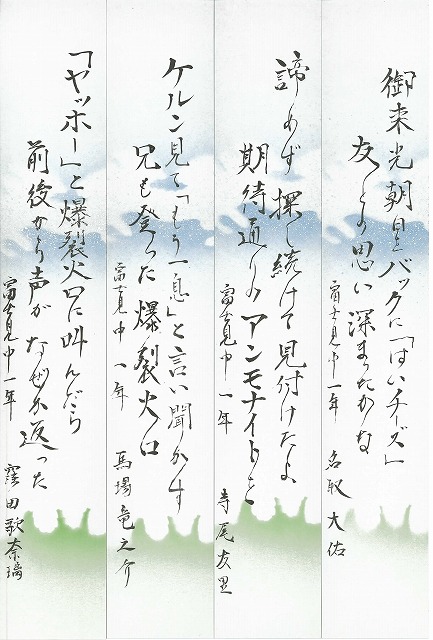 御来光朝日をバックに「はいチーズ」
友との思い深まったかな
富士見中一年 名取大佑
諦めず探し続けて見付けたよ
期待通りのアンモナイトを
富士見中一年 寺尾友里
ケルン見て「もう一息」と言い聞かす
兄も登った爆裂火口
富士見中一年 馬場竜之介
「ヤッホー」と爆裂火口に叫んだら
前後から声がなぜか返った
富士見中一年 窪田歌奈璃